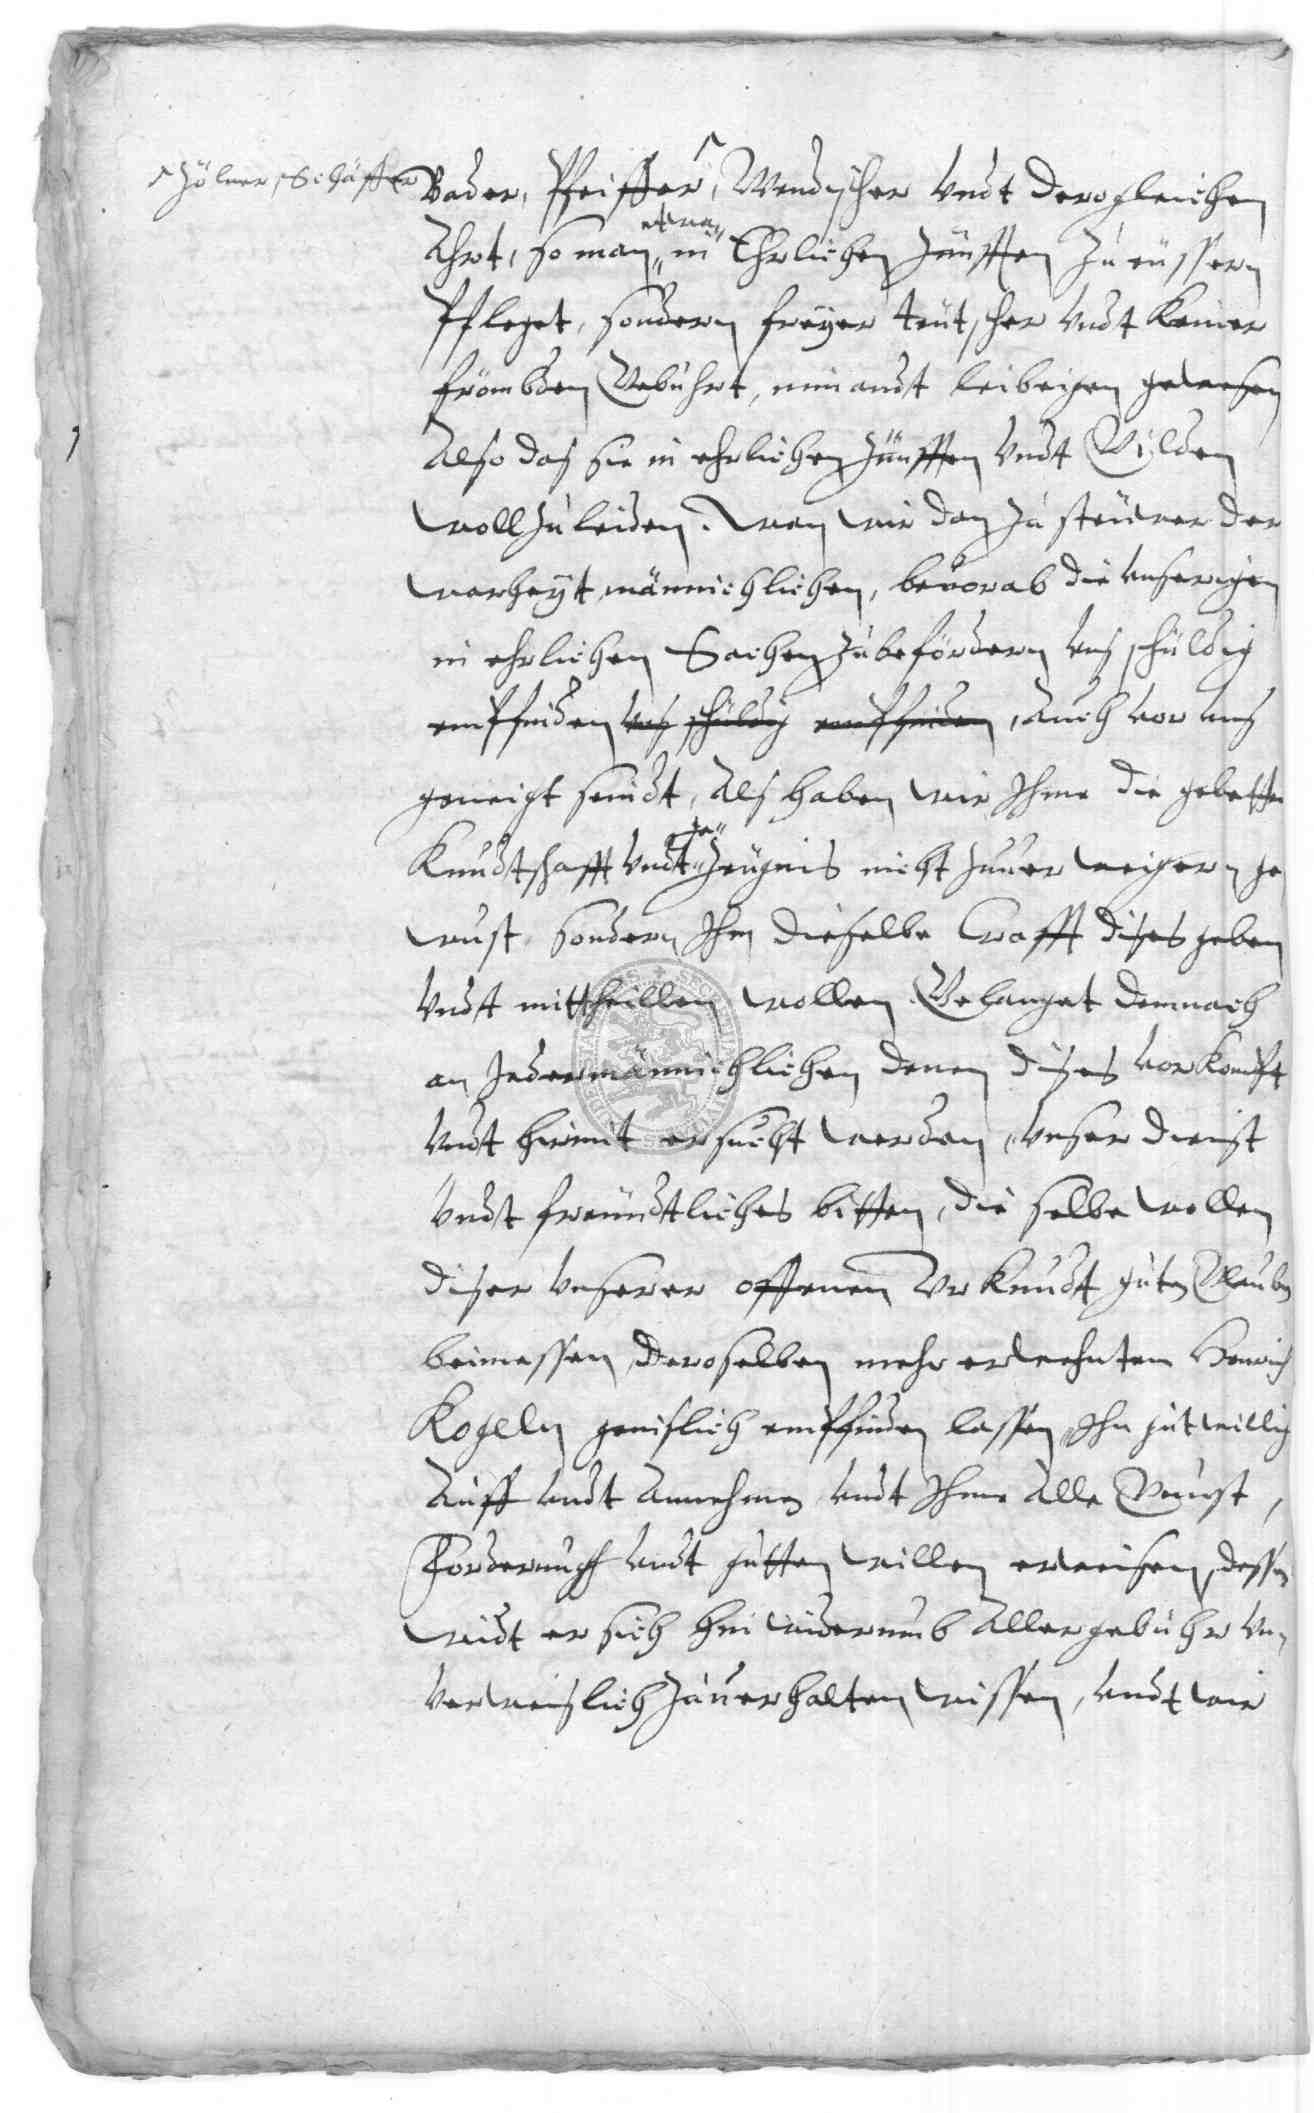 Zölner, Schäffer
Bader, Pfeiffer, Wendischer Undt dergleichen
Ahrt, so man etwan in Ehrlichen Zünfften Zu eüssern
Pfleget, sondern freÿer teütscher Undt Keiner
frömbden Gebuhrt, niemandt leibeigen gewesen
Also das sie in ehrlichen Zünfften Undt Gilden
woll Zuleiden. wan wir dan Zu steüwer der
warheÿt männichlichen, beuorab die unserigen
in ehrlichen Sachen Zubefördern uns schuldig
empfinden uns schuldig empfinden, Auch vor uns
geneigt seindt, Als haben wir Ihme die gebettne
Kundtschafft Undt Zeügnis nicht Zuuer weigern ge
wust, sondern Ihm dieselbe Crafft dises geben
Undt mittheillen wollen. Gelanget demnach
an Jedermännichlichen denen dises vorKompt
Undt hiermit ersucht werden, unser dienst
Undt freündtliches bitten, die selbe wollen
diser unserer offenen UrKundt guten Glauben
beimessen, deroselben mehr erwehntem Henrich
Kogeln genislich empfinden lassen, Ihn gutwillig
Auff undt Annehmen undt Ihme Alle Gunst,
Forderung undt gutten willen erweisen, dessen
widt er sich hin widerumb Aller gebuhr un-
verweislich Zuuerhalten wissen, undt wir